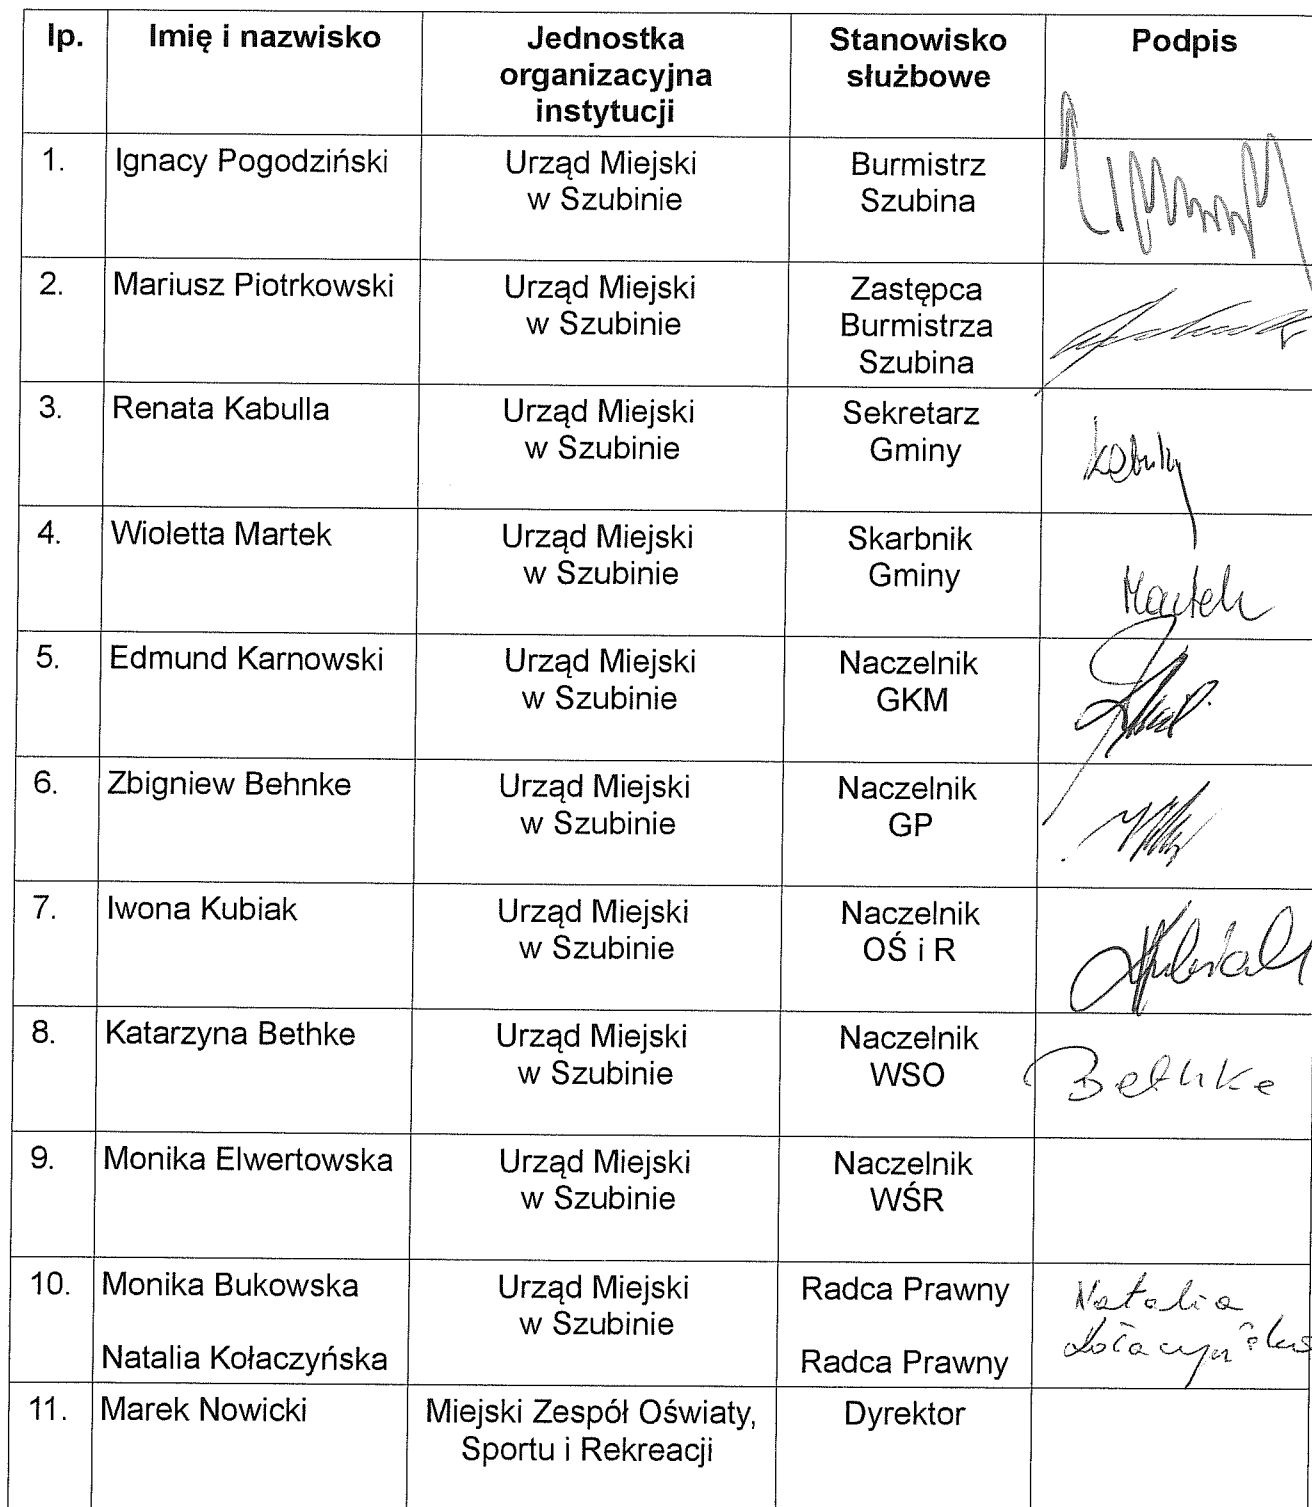 lp.
Imię i nazwisko
Jednostka
organizacyjna
instytucji
Stanowisko
służbowe
Podpis
1.
Ignacy Pogodziński
Urząd Miejski
w Szubinie
Burmistrz
Szubina
2.
Mariusz Piotrkowski
Urząd Miejski
w Szubinie
Zastępca
Burmistrza
Szubina
3.
Renata Kabulla
Urząd Miejski
w Szubinie
Sekretarz
Gminy
4.
Wioletta Martek
Urząd Miejski
w Szubinie
Skarbnik
Gminy
Martek
5.
Edmund Karnowski
Urząd Miejski
w Szubinie
Naczelnik
GKM
6.
Zbigniew Behnke
Urząd Miejski
w Szubinie
Naczelnik
GP
7.
Iwona Kubiak
Urząd Miejski
w Szubinie
Naczelnik
OŚ i R
8.
Katarzyna Bethke
Urząd Miejski
w Szubinie
Naczelnik
WSO
Bethke
9.
Monika Elwertowska
Urząd Miejski
w Szubinie
Naczelnik
WŚR
10.
Monika Bukowska
Natalia Kołaczyńska
Urząd Miejski
w Szubinie
Radca Prawny
Radca Prawny
Natalia
Kołaczyńska
11.
Marek Nowicki
Miejski Zespół Oświaty,
Sportu i Rekreacji
Dyrektor